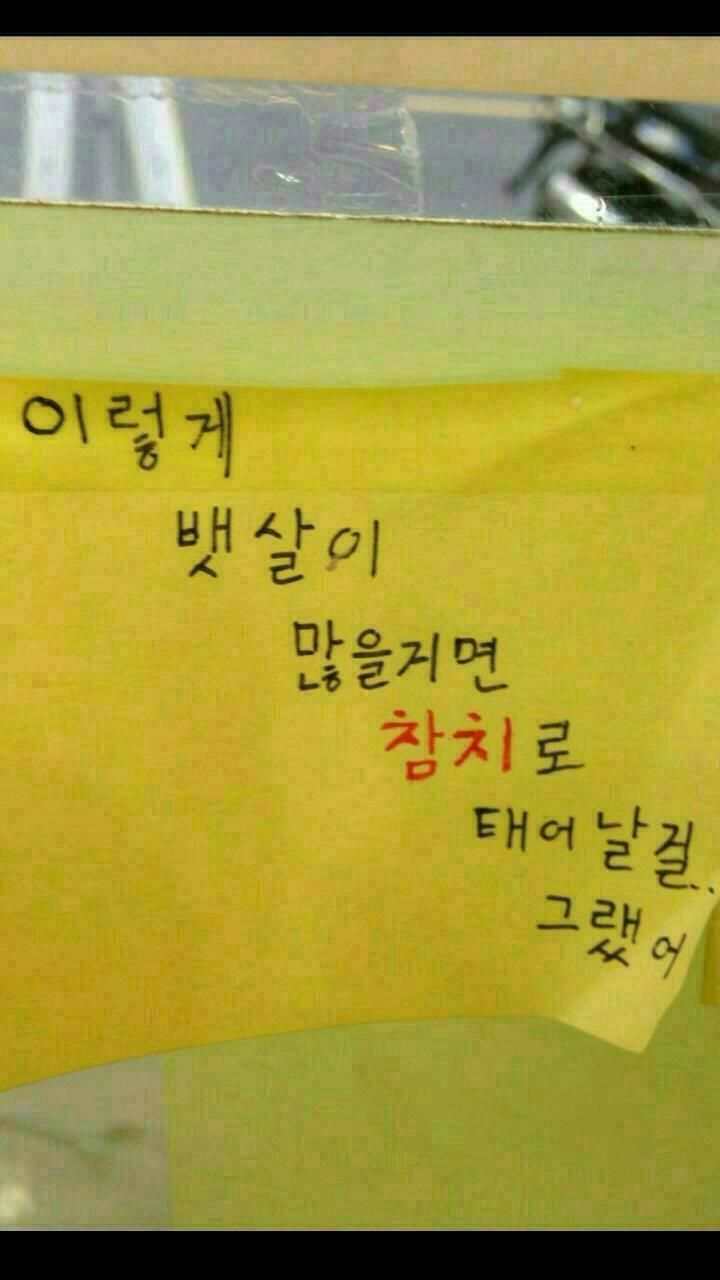 이렇게
뱃살이
많을지면
참치로
태어날걸..
그랬어